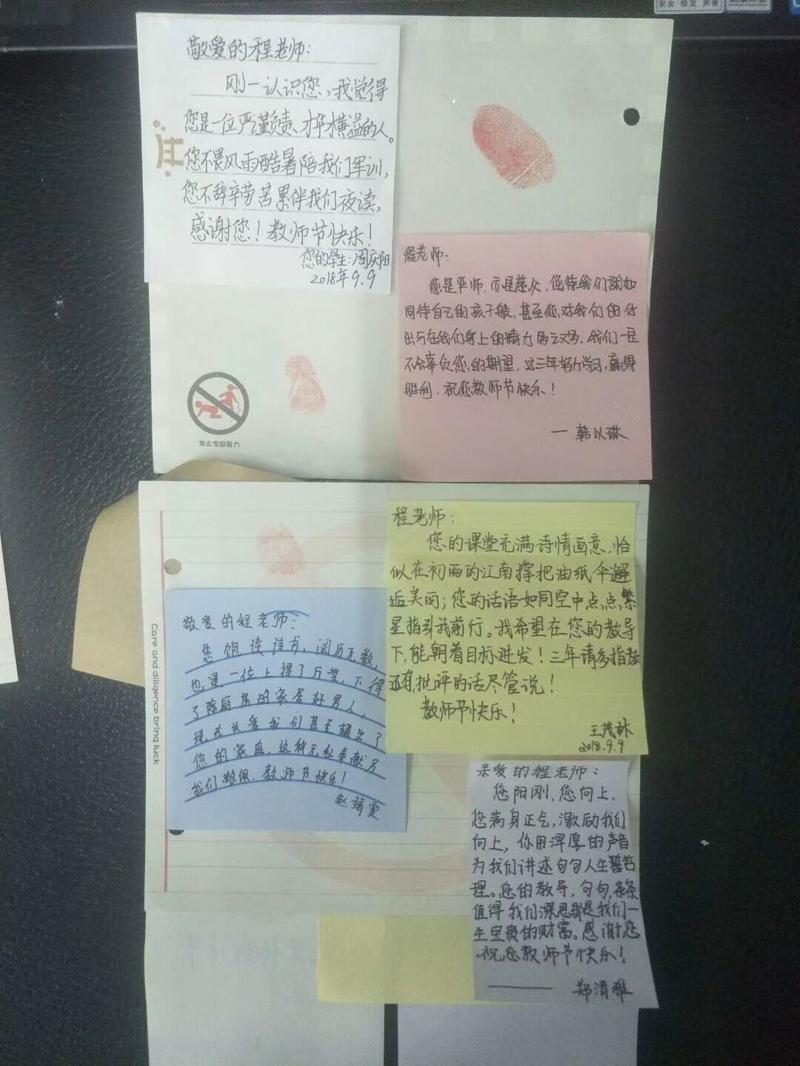 敬爱的程老师：
刚一认识您，我觉得
您是一位严谨负责、才华横溢的人。
您不畏风雨酷暑陪我们军训，
您不辞辛劳苦累伴我们夜读，
感谢您！教师节快乐！
您的学生：周庆阳
2018年9.9
程老师：
您是严师，亦是慈父，您待我们就如
同待自己的孩子般，甚至您对我们的付
出与在我们身上的精力多之又多，我们一定
不会辜负您的期望，这三年努力学习，赢得
胜利，祝您教师节快乐！
— 韩以琳
禁止专政暴力
程老师：
您的课堂充满诗情画意，恰
似在初雨的江南撑把油纸伞邂
逅美丽；您的话语如同空中点点繁
星指引我前行。我希望在您的教导
下，能朝着目标进发！三年请多指教
还有，批评的话尽管说！
教师节快乐！
王茂林
2018.9.9
敬爱的程老师：
您饱读诗书，阅历无数，
也是一位上得了厅堂，下得
了了厨房的家居好男人，
现在关爱我们甚至超出了
您的家庭，这种无私奉献另
我们敬佩，教师节快乐！
赵婧雯
Care and diligence bring luck
亲爱的程老师：
您阳刚，您向上，
您满身正气，激励我们
向上，你用浑厚的声音
为我们讲述句句人生哲
理。您的教导，句句，条条
值得我们深思都是我们一
生宝贵的财富。感谢您，
祝您教师节快乐！
—— 郑清雅